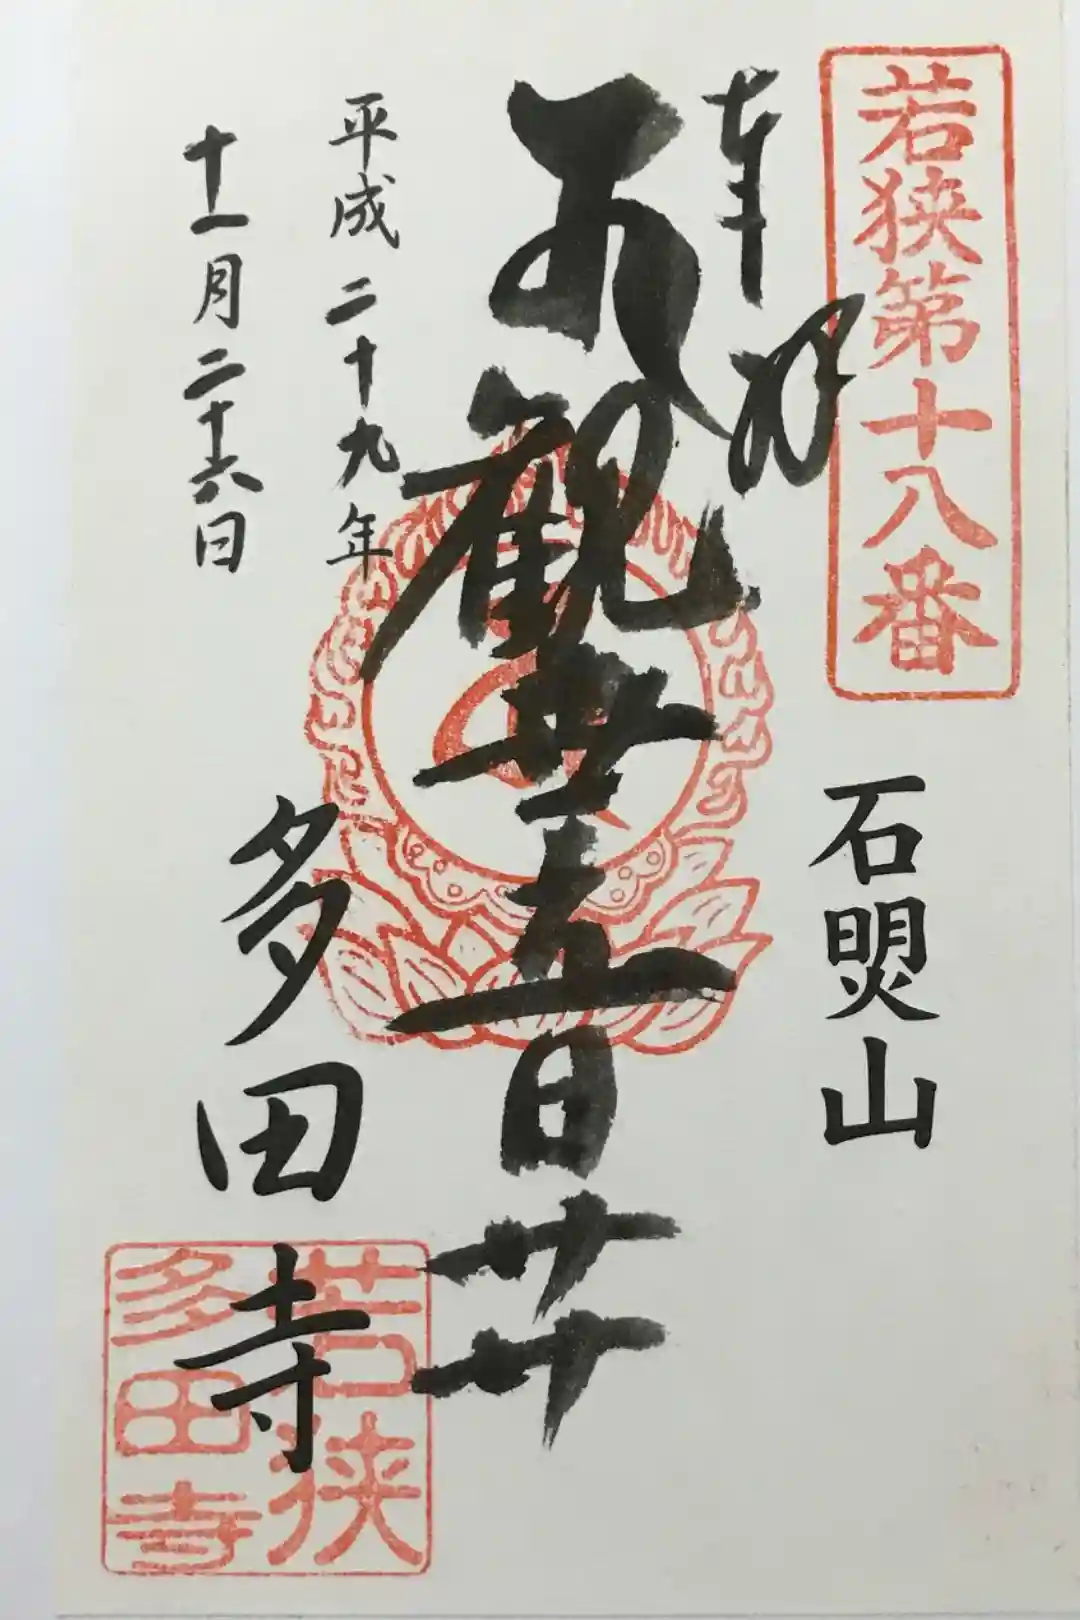 若狭第十八番
奉拝
石照山
観世音𦬇
平成二十九年
十一月二十六日
多田寺
若狭
多田寺